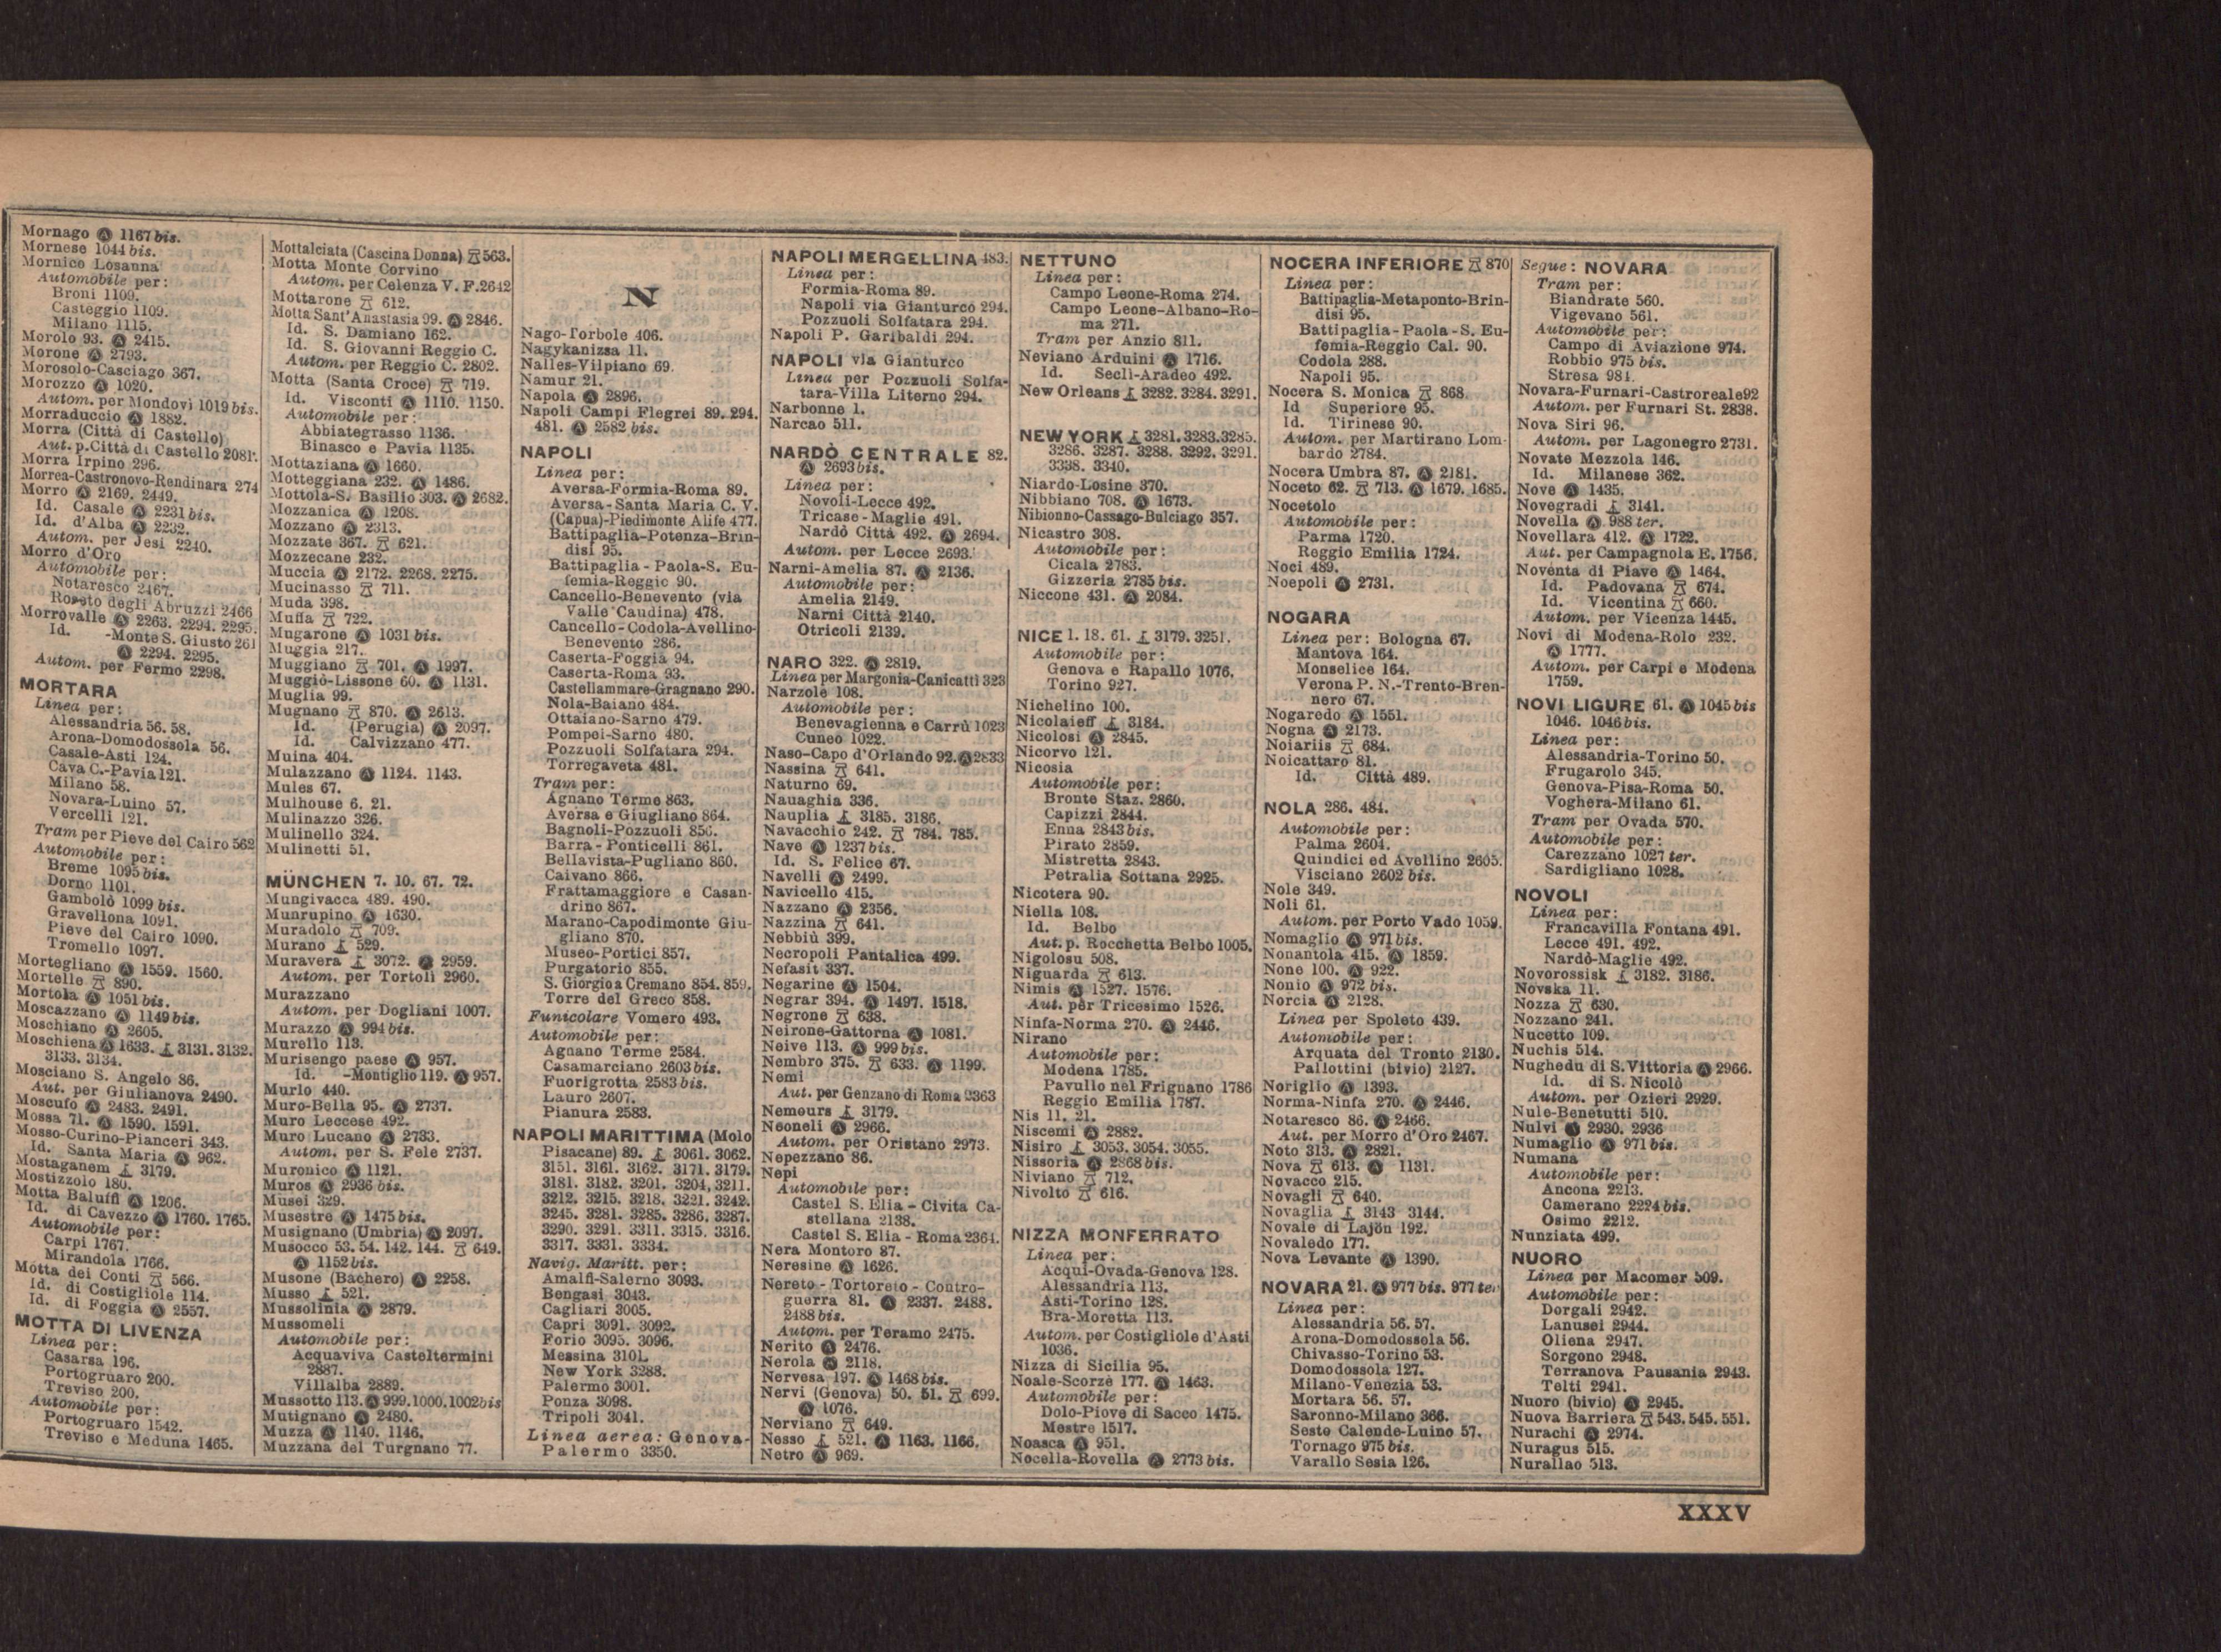 Mornago Ⓐ 1167 bis.
Mornese 1044 bis.
Mornico Losanna
Automobile per:
Broni 1109.
Casteggio 1109.
Milano 1115.
Morolo 93. Ⓐ 2415.
Morone Ⓐ 2793.
Morosolo-Casciago 367.
Morozzo Ⓐ 1020.
Autom. per Mondovì 1019 bis.
Morraduccio Ⓐ 1882.
Morra (Città di Castello)
Aut. p. Città di Castello 2081.
Morra Irpino 296.
Morrea-Castronovo-Rendinara 274
Morro Ⓐ 2169. 2449.
Id. Casale Ⓐ 2231 bis.
Id. d'Alba Ⓐ 2232.
Autom. per Jesi 2240.
Morro d'Oro
Automobile per:
Notaresco 2467.
Roseto degli Abruzzi 2466
Morrovalle Ⓐ 2263. 2294. 2295.
Id. -Monte S. Giusto 261
Ⓐ 2294. 2295.
Autom. per Fermo 2298.
MORTARA
Linea per:
Alessandria 56. 58.
Arona-Domodossola 56.
Casale-Asti 124.
Cava C.-Pavia 121.
Milano 58.
Novara-Luino 57.
Vercelli 121.
Tram per Pieve del Cairo 562
Automobile per:
Breme 1095 bis.
Dorno 1101.
Gambolò 1099 bis.
Gravellona 1091.
Pieve del Cairo 1090.
Tromello 1097.
Mortegliano Ⓐ 1559. 1560.
Mortelle 890.
Mortola Ⓐ 1051 bis.
Moscazzano Ⓐ 1149 bis.
Moschiano Ⓐ 2605.
Moschiena Ⓐ 1633. 3131. 3132.
3133. 3134.
Mosciano S. Angelo 86.
Aut. per Giulianova 2490.
Moscufo Ⓐ 2483. 2491.
Mossa 71. Ⓐ 1590. 1591.
Mosso-Curino-Pianceri 343.
Id. Santa Maria Ⓐ 962.
Mostaganem 3179.
Mostizzolo 180.
Motta Baluffi Ⓐ 1206.
Id. di Cavezzo Ⓐ 1760. 1765.
Automobile per:
Carpi 1767.
Mirandola 1766.
Motta dei Conti 566.
Id. di Costigliole 114.
Id. di Foggia Ⓐ 2557.
MOTTA DI LIVENZA
Linea per:
Casarsa 196.
Portogruaro 200.
Treviso 200.
Automobile per:
Portogruaro 1542.
Treviso e Meduna 1465.
Mottalciata (Cascina Donna) 563.
Motta Monte Corvino
Autom. per Celenza V. F. 2642
Mottarone 612.
Motta Sant'Anastasia 99. Ⓐ 2846.
Id. S. Damiano 162.
Id. S. Giovanni Reggio C.
Autom. per Reggio C. 2802.
Motta (Santa Croce) 719.
Id. Visconti Ⓐ 1110. 1150.
Automobile per:
Abbiategrasso 1136.
Binasco e Pavia 1135.
Mottaziana Ⓐ 1660.
Motteggiana 232. Ⓐ 1486.
Mottola-S. Basilio 303. Ⓐ 2682.
Mozzanica Ⓐ 1208.
Mozzano Ⓐ 2313.
Mozzate 367. 621.
Mozzecane 232.
Muccia Ⓐ 2172. 2268. 2275.
Mucinasso 711.
Muda 398.
Muffa 722.
Mugarone Ⓐ 1031 bis.
Muggia 217.
Muggiano 701. Ⓐ 1997.
Muggiò-Lissone 60. Ⓐ 1131.
Muglia 99.
Mugnano 870. Ⓐ 2613.
Id. (Perugia) Ⓐ 2097.
Id. Calvizzano 477.
Muina 404.
Mulazzano Ⓐ 1124. 1143.
Mules 67.
Mulhouse 6. 21.
Mulinazzo 326.
Mulinello 324.
Mulinetti 51.
MÜNCHEN 7. 10. 67. 72.
Mungivacca 489. 490.
Munrupino Ⓐ 1630.
Muradolo 709.
Murano 529.
Muravera 3072. Ⓐ 2959.
Autom. per Tortolì 2960.
Murazzano
Autom. per Dogliani 1007.
Murazzo Ⓐ 994 bis.
Murello 113.
Murisengo paese Ⓐ 957.
Id. -Montiglio 119. Ⓐ 957.
Murlo 440.
Muro-Bella 95. Ⓐ 2737.
Muro Leccese 492.
Muro Lucano Ⓐ 2733.
Autom. per S. Fele 2737.
Muronico Ⓐ 1121.
Muros Ⓐ 2936 bis.
Musei 329.
Musestre Ⓐ 1475 bis.
Musignano (Umbria) Ⓐ 2097.
Musocco 53. 54. 142. 144. 649.
Ⓐ 1152 bis.
Musone (Bachero) Ⓐ 2258.
Musso 521.
Mussolinia Ⓐ 2879.
Mussomeli
Automobile per:
Acquaviva Casteltermini
2887.
Villalba 2889.
Mussotto 113. Ⓐ 999. 1000. 1002 bis
Mutignano Ⓐ 2480.
Muzza Ⓐ 1140. 1146.
Muzzana del Turgnano 77.
N
Nago-Torbole 406.
Nagykanizsa 11.
Nalles-Vilpiano 69.
Namur 21.
Napola Ⓐ 2896.
Napoli Campi Flegrei 89. 294.
481. Ⓐ 2582 bis.
NAPOLI
Linea per:
Aversa-Formia-Roma 89.
Aversa-Santa Maria C. V.
(Capua)-Piedimonte Alife 477.
Battipaglia-Potenza-Brin-
disi 95.
Battipaglia - Paola-S. Eu-
femia-Reggio 90.
Cancello-Benevento (via
Valle Caudina) 478.
Cancello-Codola-Avellino-
Benevento 286.
Caserta-Foggia 94.
Caserta-Roma 93.
Castellammare-Gragnano 290.
Nola-Baiano 484.
Ottaiano-Sarno 479.
Pompei-Sarno 480.
Pozzuoli Solfatara 294.
Torregaveta 481.
Tram per:
Agnano Terme 863.
Aversa e Giugliano 864.
Bagnoli-Pozzuoli 856.
Barra - Ponticelli 861.
Bellavista-Pugliano 860.
Caivano 866.
Frattamaggiore e Casan-
drino 867.
Marano-Capodimonte Giu-
gliano 870.
Museo-Portici 857.
Purgatorio 855.
S. Giorgio a Cremano 854. 859.
Torre del Greco 858.
Funicolare Vomero 493.
Automobile per:
Agnano Terme 2584.
Casamarciano 2603 bis.
Fuorigrotta 2583 bis.
Lauro 2607.
Pianura 2583.
NAPOLI MARITTIMA (Molo
Pisacane) 89. 3061. 3062.
3151. 3161. 3162. 3171. 3179.
3181. 3182. 3201. 3204. 3211.
3212. 3215. 3218. 3221. 3242.
3245. 3281. 3285. 3286. 3287.
3290. 3291. 3311. 3315. 3316.
3317. 3331. 3334.
Navig. Maritt. per:
Amalfi-Salerno 3093.
Bengasi 3043.
Cagliari 3005.
Capri 3091. 3092.
Forio 3095. 3096.
Messina 3101.
New York 3288.
Palermo 3001.
Ponza 3098.
Tripoli 3041.
Linea aerea: Genova-
Palermo 3350.
NAPOLI MERGELLINA 483.
Linea per:
Formia-Roma 89.
Napoli via Gianturco 294.
Pozzuoli Solfatara 294.
Napoli P. Garibaldi 294.
NAPOLI via Gianturco
Linea per Pozzuoli Solfa-
tara-Villa Literno 294.
Narbonne 1.
Narcao 511.
NARDÒ CENTRALE 82.
Ⓐ 2693 bis.
Linea per:
Novoli-Lecce 492.
Tricase - Maglie 491.
Nardò Città 492. Ⓐ 2694.
Autom. per Lecce 2693.
Narni-Amelia 87. Ⓐ 2136.
Automobile per:
Amelia 2149.
Narni Città 2140.
Otricoli 2139.
NARO 322. Ⓐ 2819.
Linea per Margonia-Canicattì 323
Narzole 108.
Automobile per:
Benevagienna e Carrù 1023
Cuneo 1022.
Naso-Capo d'Orlando 92. Ⓐ 2833
Nassina 641.
Naturno 69.
Nauaghia 336.
Nauplia 3185. 3186.
Navacchio 242. 784. 785.
Nave Ⓐ 1237 bis.
Id. S. Felice 67.
Navelli Ⓐ 2499.
Navicello 415.
Nazzano Ⓐ 2356.
Nazzina 641.
Nebbiù 399.
Necropoli Pantalica 499.
Nefasit 337.
Negarine Ⓐ 1504.
Negrar 394. Ⓐ 1497. 1518.
Negrone 638.
Neirone-Gattorna Ⓐ 1081.
Neive 113. Ⓐ 999 bis.
Nembro 375. 633. Ⓐ 1199.
Nemi
Aut. per Genzano di Roma 2363
Nemours 3179.
Neoneli Ⓐ 2966.
Autom. per Oristano 2973.
Nepezzano 86.
Nepi
Automobile per:
Castel S. Elia - Civita Ca-
stellana 2138.
Castel S. Elia - Roma 2364.
Nera Montoro 87.
Neresine Ⓐ 1626.
Nereto - Tortoreto - Contro-
guerra 81. Ⓐ 2337. 2488.
2488 bis.
Autom. per Teramo 2475.
Nerito Ⓐ 2476.
Nerola Ⓐ 2118.
Nervesa 197. Ⓐ 1468 bis.
Nervi (Genova) 50. 51. 699.
Ⓐ 1076.
Nerviano 649.
Nesso 521. Ⓐ 1163. 1166.
Netro Ⓐ 969.
NETTUNO
Linea per:
Campo Leone-Roma 274.
Campo Leone-Albano-Ro-
ma 271.
Tram per Anzio 811.
Neviano Arduini Ⓐ 1716.
Id. Seclì-Aradeo 492.
New Orleans 3282. 3284. 3291.
NEW YORK 3281. 3283. 3285.
3286. 3287. 3288. 3292. 3291.
3338. 3340.
Niardo-Losine 370.
Nibbiano 708. Ⓐ 1673.
Nibionno-Cassago-Bulciago 357.
Nicastro 308.
Automobile per:
Cicala 2783.
Gizzeria 2785 bis.
Niccone 431. Ⓐ 2084.
NICE 1. 18. 61. 3179. 3251.
Automobile per:
Genova e Rapallo 1076.
Torino 927.
Nichelino 100.
Nicolaieff 3184.
Nicolosi Ⓐ 2845.
Nicorvo 121.
Nicosia
Automobile per:
Bronte Staz. 2860.
Capizzi 2844.
Enna 2843 bis.
Pirato 2859.
Mistretta 2843.
Petralia Sottana 2925.
Nicotera 90.
Niella 108.
Id. Belbo
Aut. p. Rocchetta Belbo 1005.
Nigolosu 508.
Niguarda 613.
Nimis Ⓐ 1527. 1576.
Aut. per Tricesimo 1526.
Ninfa-Norma 270. Ⓐ 2446.
Nirano
Automobile per:
Modena 1785.
Pavullo nel Frignano 1786
Reggio Emilia 1787.
Nis 11. 21.
Niscemi Ⓐ 2882.
Nisiro 3053. 3054. 3055.
Nissoria Ⓐ 2868 bis.
Niviano 712.
Nivolto 616.
NIZZA MONFERRATO
Linea per:
Acqui-Ovada-Genova 128.
Alessandria 113.
Asti-Torino 128.
Bra-Moretta 113.
Autom. per Costigliole d'Asti
1036.
Nizza di Sicilia 95.
Noale-Scorzè 177. Ⓐ 1463.
Automobile per:
Dolo-Piove di Sacco 1475.
Mestre 1517.
Noasca Ⓐ 951.
Nocella-Rovella Ⓐ 2773 bis.
NOCERA INFERIORE 870
Linea per:
Battipaglia-Metaponto-Brin-
disi 95.
Battipaglia - Paola - S. Eu-
femia-Reggio Cal. 90.
Codola 288.
Napoli 95.
Nocera S. Monica 868
Id Superiore 95.
Id. Tirinese 90.
Autom. per Martirano Lom-
bardo 2784.
Nocera Umbra 87. Ⓐ 2181.
Noceto 62. 713. Ⓐ 1679. 1685.
Nocetolo
Automobile per:
Parma 1720.
Reggio Emilia 1724.
Noci 489.
Noepoli Ⓐ 2731.
NOGARA
Linea per: Bologna 67.
Mantova 164.
Monselice 164.
Verona P. N.-Trento-Bren-
nero 67.
Nogaredo Ⓐ 1551.
Nogna Ⓐ 2173.
Noiariis 684.
Noicattaro 81.
Id. Città 489.
NOLA 286. 484.
Automobile per:
Palma 2604.
Quindici ed Avellino 2605.
Visciano 2602 bis.
Nole 349.
Noli 61.
Autom. per Porto Vado 1059.
Nomaglio Ⓐ 971 bis.
Nonantola 415. Ⓐ 1859.
None 100. Ⓐ 922.
Nonio Ⓐ 972 bis.
Norcia Ⓐ 2128.
Linea per Spoleto 439.
Automobile per:
Arquata del Tronto 2130.
Pallottini (bivio) 2127.
Noriglio Ⓐ 1393.
Norma-Ninfa 270. Ⓐ 2446.
Notaresco 86. Ⓐ 2466.
Aut. per Morro d'Oro 2467.
Noto 313. Ⓐ 2821.
Nova 613. Ⓐ 1131.
Novacco 215.
Novagli 640.
Novaglia 3143 3144.
Novale di Lajön 192.
Novaledo 177.
Nova Levante Ⓐ 1390.
NOVARA 21. Ⓐ 977 bis. 977 ter
Linea per:
Alessandria 56. 57.
Arona-Domodossola 56.
Chivasso-Torino 53.
Domodossola 127.
Milano-Venezia 53.
Mortara 56. 57.
Saronno-Milano 366.
Sesto Calende-Luino 57.
Tornago 975 bis.
Varallo Sesia 126.
Segue: NOVARA
Tram per:
Biandrate 560.
Vigevano 561.
Automobile per:
Campo di Aviazione 974.
Robbio 975 bis.
Stresa 981.
Novara-Furnari-Castroreale 92
Autom. per Furnari St. 2838.
Nova Siri 96.
Autom. per Lagonegro 2731.
Novate Mezzola 146.
Id. Milanese 362.
Nove Ⓐ 1435.
Novegradi 3141.
Novella Ⓐ 988 ter.
Novellara 412. Ⓐ 1722.
Aut. per Campagnola E. 1756.
Noventa di Piave Ⓐ 1464.
Id. Padovana 674.
Id. Vicentina 660.
Autom. per Vicenza 1445.
Novi di Modena-Rolo 232.
Ⓐ 1777.
Autom. per Carpi e Modena
1759.
NOVI LIGURE 61. Ⓐ 1045 bis
1046. 1046 bis.
Linea per:
Alessandria-Torino 50.
Frugarolo 345.
Genova-Pisa-Roma 50.
Voghera-Milano 61.
Tram per Ovada 570.
Automobile per:
Carezzano 1027 ter.
Sardigliano 1028.
NOVOLI
Linea per:
Francavilla Fontana 491.
Lecce 491. 492.
Nardò-Maglie 492.
Novorossisk 3182. 3186.
Novska 11.
Nozza 630.
Nozzano 241.
Nucetto 109.
Nuchis 514.
Nughedu di S. Vittoria Ⓐ 2966.
Id. di S. Nicolò
Autom. per Ozieri 2929.
Nule-Benetutti 510.
Nulvi Ⓐ 2930. 2936
Numaglio Ⓐ 971 bis.
Numana
Automobile per:
Ancona 2213.
Camerano 2224 bis.
Osimo 2212.
Nunziata 499.
NUORO
Linea per Macomer 509.
Automobile per:
Dorgali 2942.
Lanusei 2944.
Oliena 2947.
Sorgono 2948.
Terranova Pausania 2943.
Telti 2941.
Nuoro (bivio) Ⓐ 2945.
Nuova Barriera 543. 545. 551.
Nurachi Ⓐ 2974.
Nuragus 515.
Nurallao 513.
XXXV